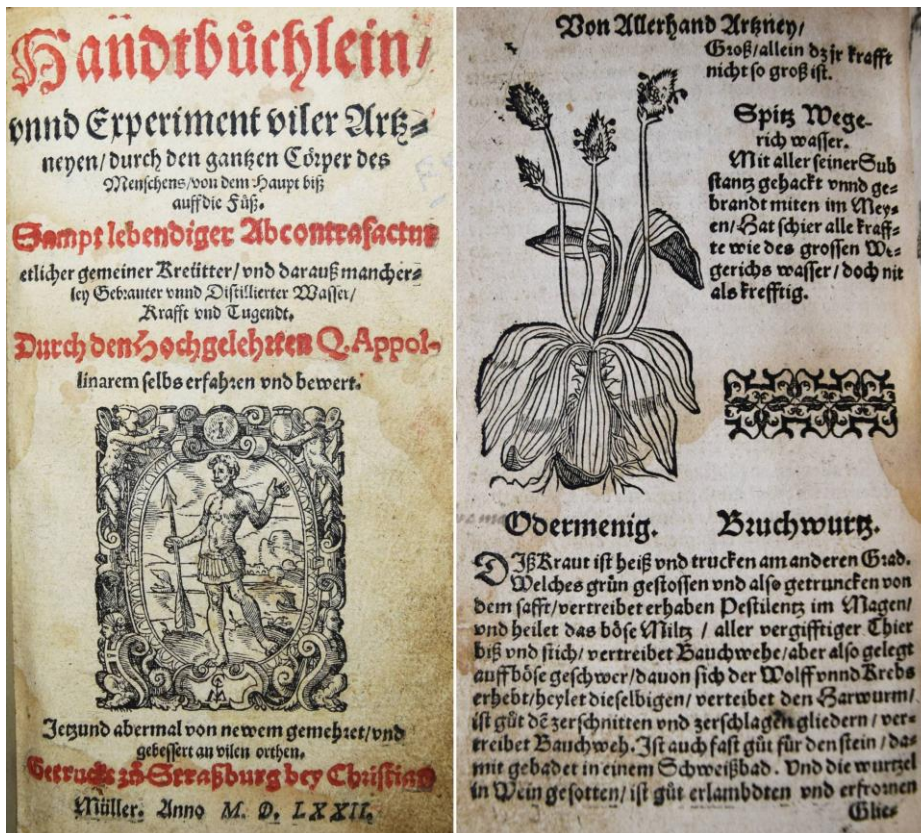 Handtbůchlein/
vnnd Experiment viler Artz⸗
neyen/durch den gantzen Cörper des
Menschens/von dem Haupt biß
auff die Füß.
Sampt lebendiger Abcontrafactur
etlicher gemeiner Kreütter/vnd darauß mancher⸗
ley Gebranter vnnd Distillierter Wasser/
Krafft vnd Tugendt.
Durch den Hochgelehrten Q. Appol⸗
linarem selbs erfahren vnd bewert.
Jetzund abermal von newem gemehret/vnd
gebessert an vilen orthen.
Getruckt zů Straßburg bey Christian
Müller. Anno M. D. LXXII.
Von Allerhand Artzney/
Groß/allein dz jr krafft
nicht so groß ist.
Spitz Wege⸗
rich wasser.
Mit aller seiner Sub
stantz gehackt vnnd ge⸗
brandt miten im Mey⸗
en/Hat schier alle kräff⸗
te wie des grossen We⸗
gerichs wasser/doch nit
als krefftig.
Odermenig. Bruchwurtz.
DIß Kraut ist heiß vnd trucken am anderen Grad.
Welches grün gestossen vnd also getruncken von
dem safft/vertreibet erhaben Pestilentz im Magen/
vnd heilet das böse Miltz / aller vergifftiger Thier
biß vnd stich/vertreibet Bauchwehe/aber also gelegt
auff böse geschwer/dauon sich der Wolff vnnd Krebs
erhebt/heylet dieselbigen/verteibet den Harwurm/
ist gůt dē zerschnitten vnd zerschlagen gliedern/ver⸗
treibet Bauchweh. Ist auch fast gůt für den stein/da⸗
mit gebadet in einem Schweißbad. Vnd die wurtzel
in Wein gesotten/ist gůt erlambdten vnd erfrornen
Glie⸗